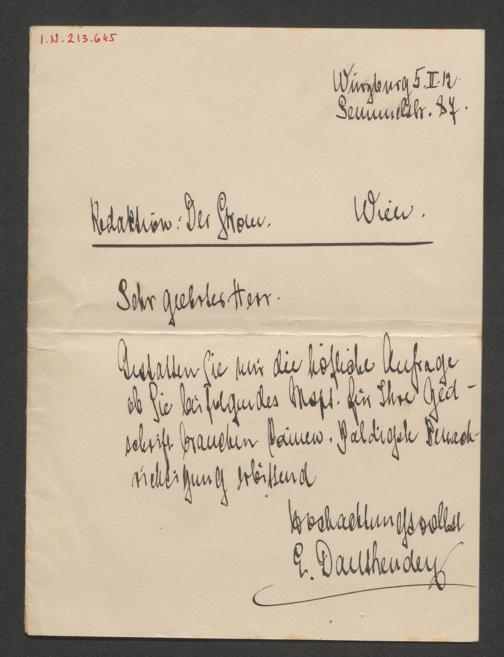 I.N. 213.645
Würzburg 5.II.12.
Semmelstr. 87.
Redaktion: Der Strom. Wien.
Sehr geehrter Herr.
Gestatten Sie mir die höfliche Anfrage
ob Sie beifolgendes Mspt. für Ihre Zeit-
schrift brauchen können. Baldigste Benach-
richtigung erbittend
hochachtungsvollst
E. Dauthendey